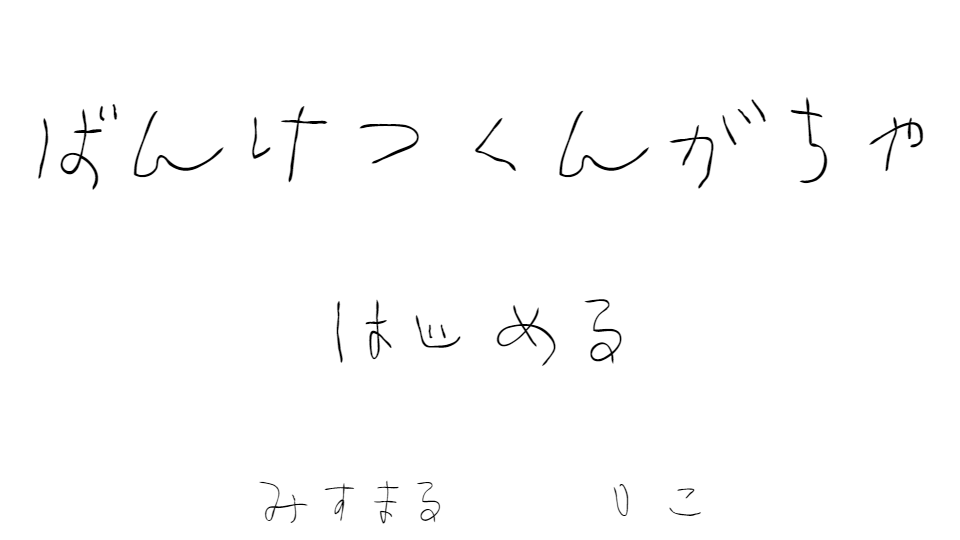 ばんけつくんがちゃ
はじめる
みすまる 0こ